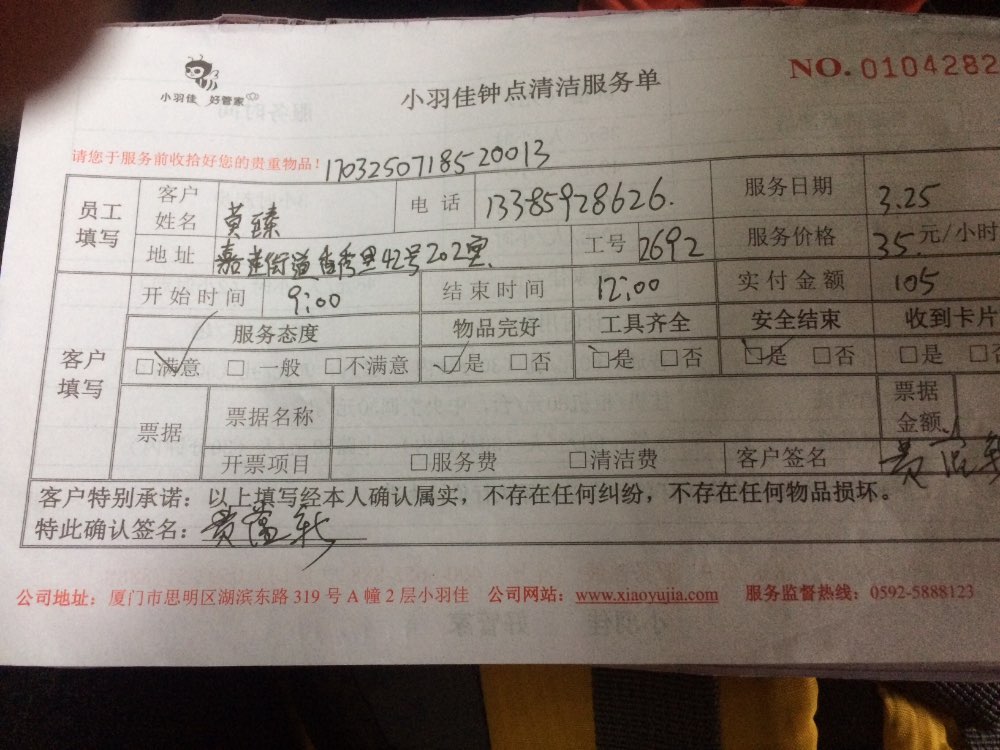 小羽佳 好管家
小羽佳钟点清洁服务单
NO. 0104282
请您于服务前收拾好您的贵重物品! 1703250718520013
员工填写 客户姓名 黄臻 电话 13385928626. 服务日期 3.25
地址 嘉莲街道香秀里42号202室. 工号 2692 服务价格 35元/小时
客户填写 开始时间 9:00 结束时间 12:00 实付金额 105
服务态度 物品完好 工具齐全 安全结束 收到卡片
□满意 □一般 □不满意 □是 □否 □是 □否 □是 □否 □是
票据 票据名称 票据金额
开票项目 □服务费 □清洁费 客户签名
客户特别承诺：以上填写经本人确认属实，不存在任何纠纷，不存在任何物品损坏。
特此确认签名：
公司地址：厦门市思明区湖滨东路 319 号 A 幢 2 层小羽佳 公司网站：www.xiaoyujia.com 服务监督热线：0592-5888123